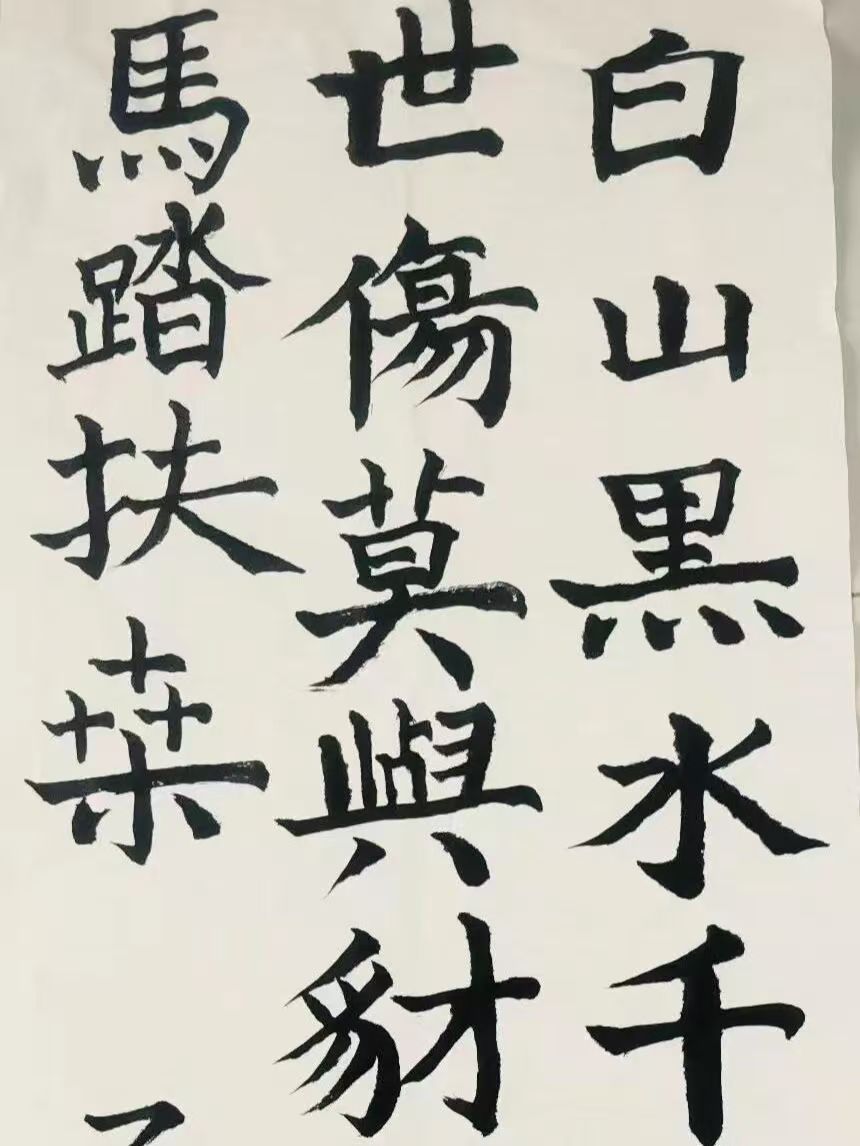 白山黑水千
世傷莫與豺
馬踏扶桒